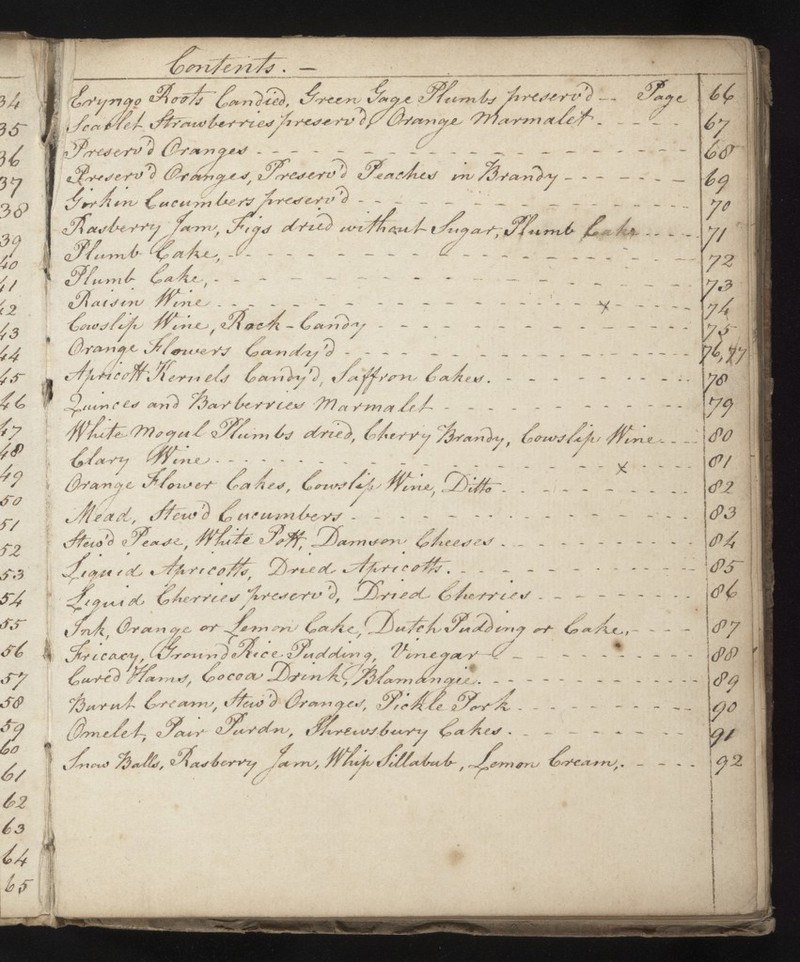 34
35
36
37
38
39
40
41
42
43
44
45
46
47
48
49
50
51
52
53
54
55
56
57
58
59
60
61
62
63
64
65
Contents. —
Eryngo Roots Candied, Green Gage Plumbs preserv'd -- Page 66
Scarlet Strawberries preserv'd, Orange Marmalet - - - - 67
Preserv'd Oranges - - - - 68
Preserv'd Oranges, Preserv'd Peaches in Brandy - - - - 69
Girkin Cucumbers preserv'd - - - - 70
Rasberry Jam, Figs dried without Sugar, Plumb Cake - - - - 71
Plumb Cake, - - - - 72
Plumb Cake, - - - - 73
Raisin Wine - - - - x - - - - 74
Cowslip Wine, Rock-Candy - - - - 75
Orange Flowers Candy'd - - - - 76,77
Apricott Kernels Candy'd, Saffron Cakes. - - - - 78
Quinces and Barberries Marmalet - - - - 79
White Mogul Plumbs dried, Cherry Brandy, Cowslip Wine - - - 80
Clary Wine - - - - x - - - - 81
Orange Flower Cakes, Cowslip Wine, Ditto - - - - 82
Mead, Stew'd Cucumbers - - - - 83
Stew'd Pease, White Pott, Damson Cheeses - - - - 84
Liquid Apricotts, Dried Apricotts. - - - - 85
Liquid Cherries preserv'd, Dried Cherries - - - - 86
Ink, Orange or Lemon Cake, Dutch Pudding or Cake, - - - 87
Fricacy, Ground Rice Pudding, Vinegar - - - - 88
Cured Hams, Cocoa Drink, Blamangie. - - - - 89
Burnt Cream, Stew'd Oranges, Pickle Pork - - - - 90
Omelet, Pair Purdn, Shrewsbury Cakes. - - - - 91
Snow Balls, Rasberry Jam, Whip Sillabub, Lemon Cream, - - - - 92